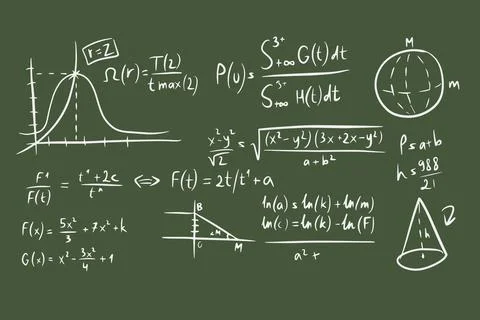 r=2
Ω(r)=T(2)/tmax(2)
P(υ)s ∫3+ +∞ G(t)dt / ∫3+ +∞ H(t)dt
M
m
x²-y²/√2 s √(x²-y²)(3x+2x-y²)/a+b²
Psa+b
hs988/21
F¹/F(t) = t¹+2c/tⁿ ⇔ F(t)=2t/t¹+a
ln(a)sln(k)+ln(m)
ln(c)=ln(k)-ln(F)
a²+
B
C
∠M
M
h
F(x)=5x²/3+7x²+k
G(x)=x²-3x²/4+1